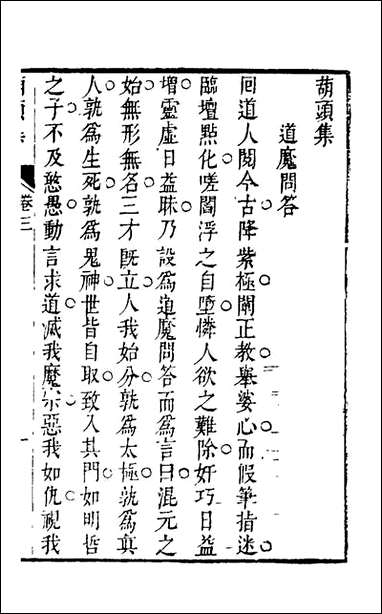 葫頭集
道魔問答
囘道人閱今古降紫極闡正教舉婆心而假筆指迷
臨壇點化嗟閻浮之自墮憐人欲之難除奸巧日益
增靈虛日益昧乃設為道魔問答而為言曰混元之
始無形無名三才既立人我始分孰為太極孰為真
人孰為生死孰為鬼神世皆自取致入其門如明哲
之子不及憨愚動言求道滅我魔宗惡我如仇視我
卷三
一